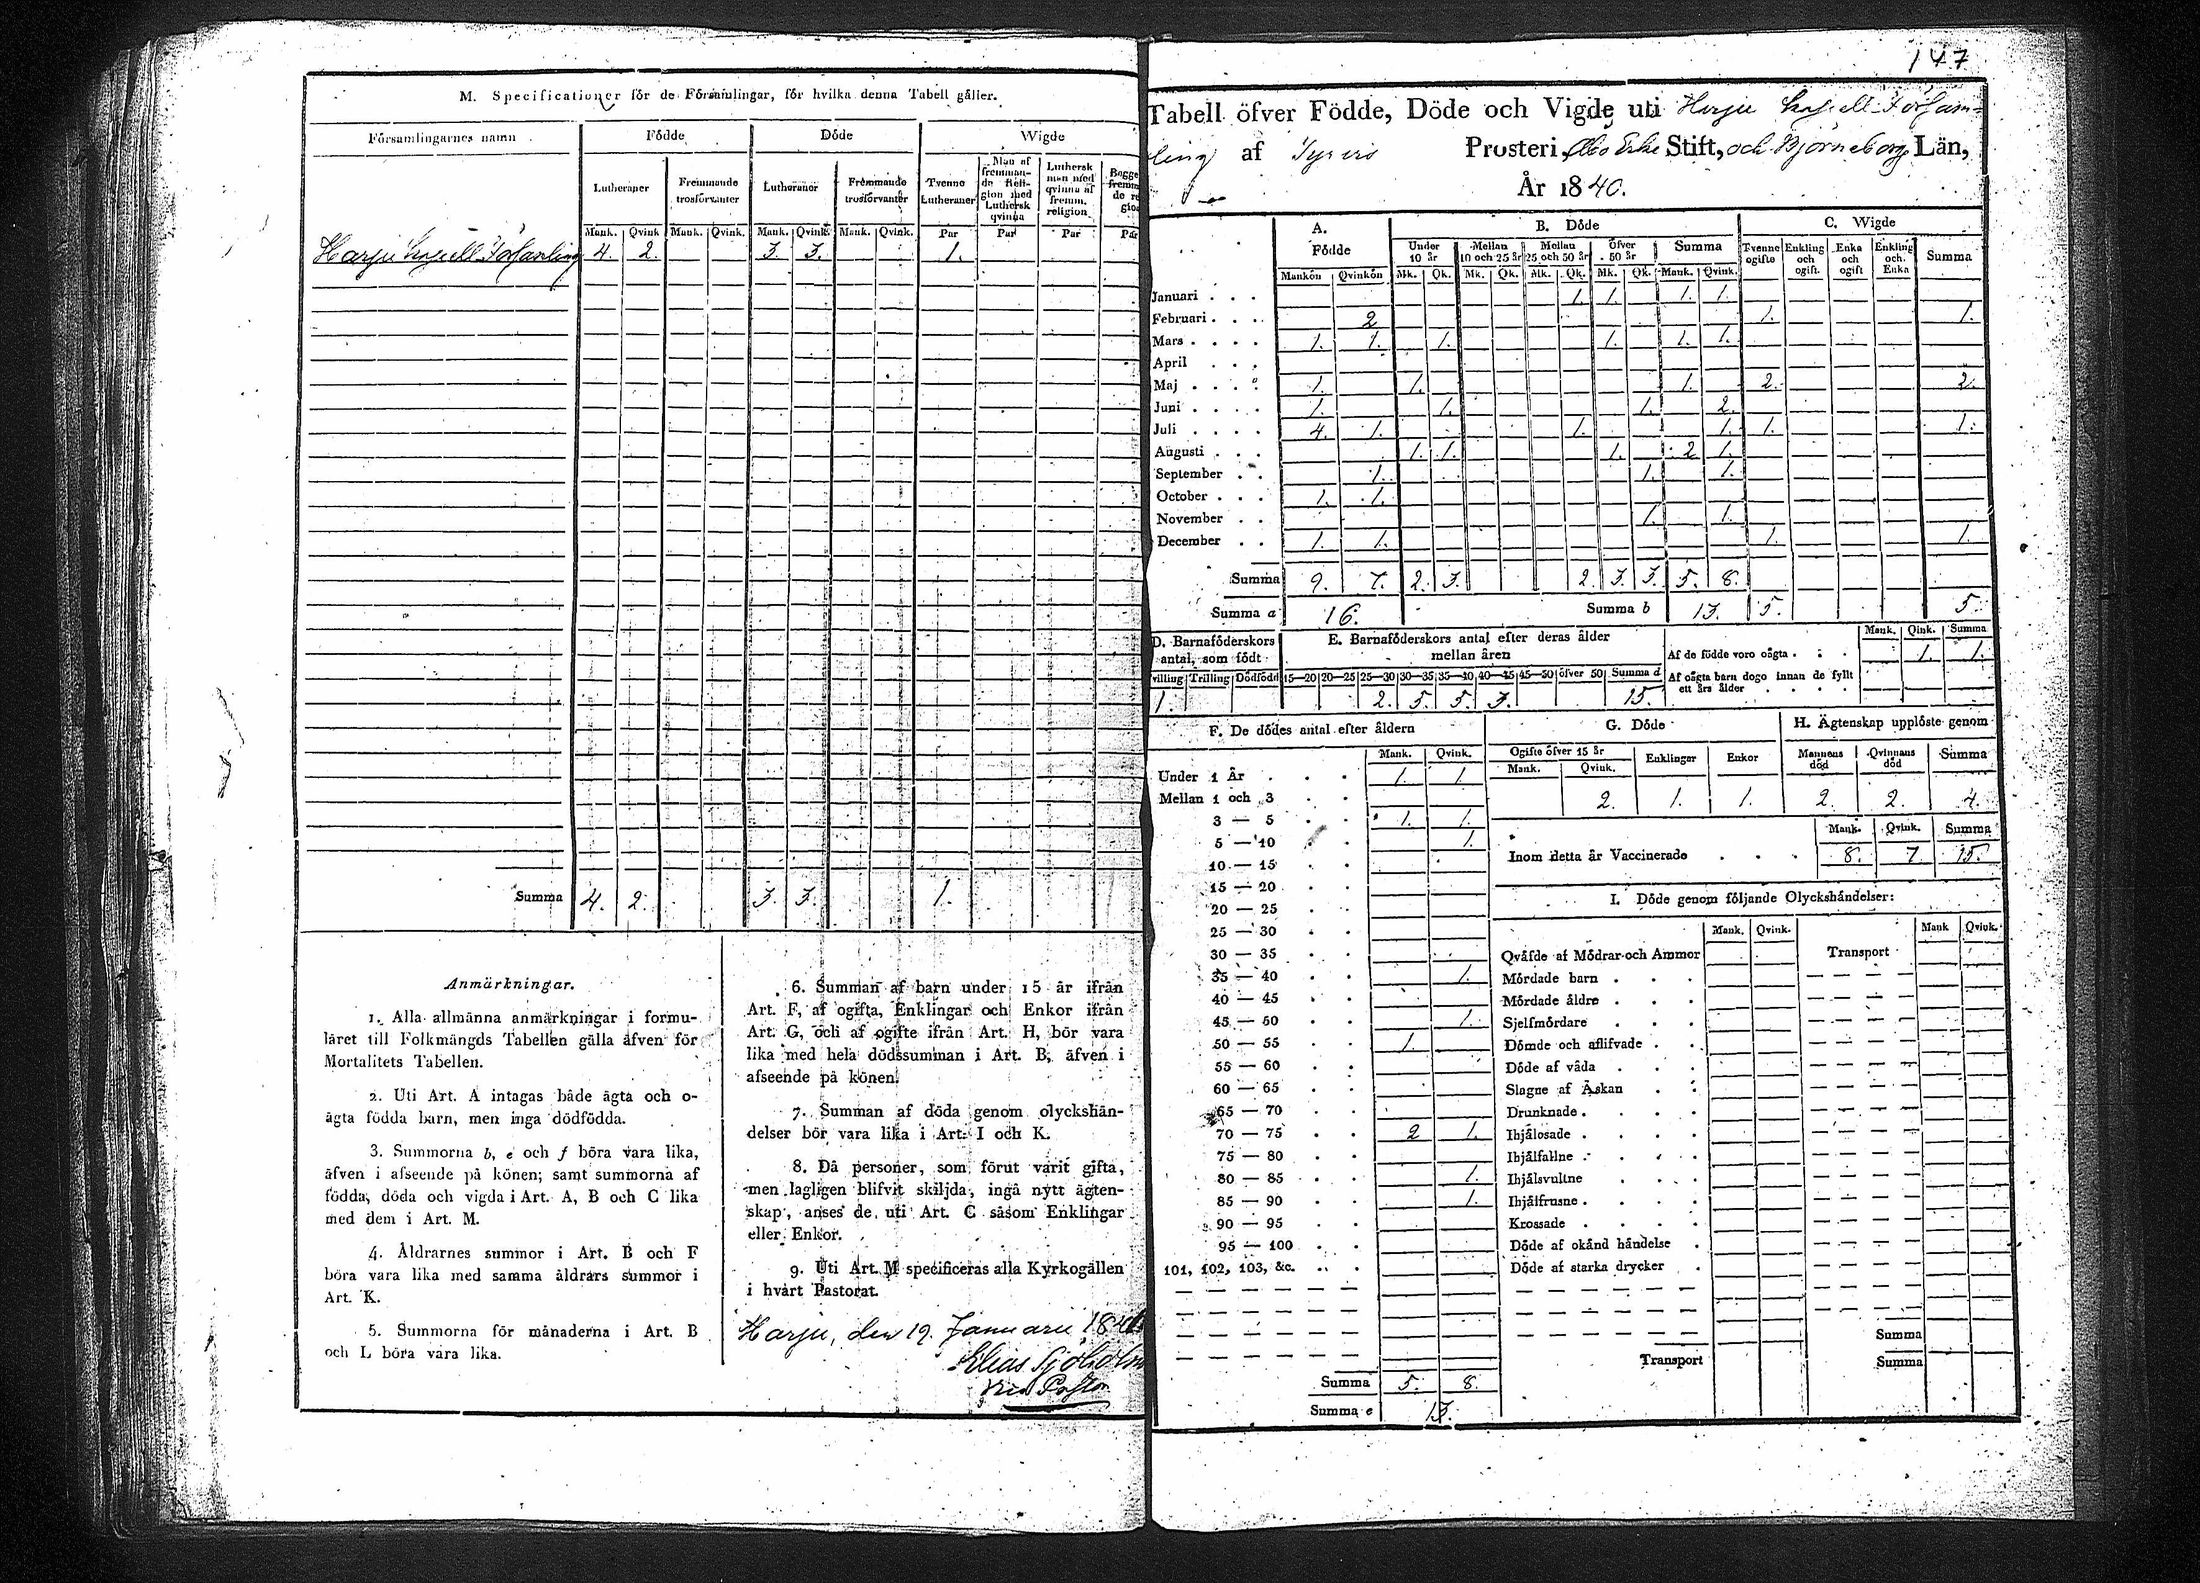 M. Specificationer för de Församlingar, för hvilka denna Tabell gäller.
Församlingarnes namn Födde Döde Wigde
Lutheraner Fremmande trosförvanter Lutheraner Fremmande trosförvanter Tvenne Lutheraner Man af fremmande Religion med Luthersk qvinna Luthersk man med qvinna af fremm. religion
Mank. Qvink. Mank. Qvink. Mank. Qvink. Mank. Qvink. Par Par Par Par
Harju 4. 2. 3. 3. 1.
Summa 4. 2. 3. 3. 1.
Anmärkningar.
1. Alla allmänna anmärkningar i formu-
läret till Folkmängds Tabellen gälla äfven för
Mortalitets Tabellen.
2. Uti Art. A intagas både ägta och o-
ägta födda barn, men inga dödfödda.
3. Summorna b, e och f böra vara lika,
äfven i afseende på könen; samt summorna af
födda, döda och vigda i Art. A, B och C lika
med dem i Art. M.
4. Åldrarnes summor i Art. B och F
böra vara lika med samma åldrars summor i
Art. K.
5. Summorna för månaderna i Art. B
och L böra vara lika.
6. Summan af barn under 15 år ifrån
Art. F, af ogifta, Enklingar och Enkor ifrån
Art. G, och af ogifte ifrån Art. H, bör vara
lika med hela dödssumman i Art. B, äfven i
afseende på könen.
7. Summan af döda genom olyckshän-
delser bör vara lika i Art. I och K.
8. Då personer, som förut varit gifta,
men lagligen blifvit skiljda, ingå nytt ägten-
skap, anses de uti Art. C såsom Enklingar
eller Enkor.
9. Uti Art. M specificeras alla Kyrkogällen
i hvart Pastorat.
Harju, den 19. Januarii
Elias Sjöholm
147
Tabell öfver Födde, Döde och Vigde uti Harju
af Tyrvis Prosteri, Åbo Erke Stift, och Björneborgs Län,
År 1840.
A. Födde B. Döde C. Wigde
Under 10 år Mellan 10 och 25 år Mellan 25 och 50 år Öfver 50 år Summa Tvenne ogifte Enkling och ogift. Enka och ogift Enkling och Enka Summa
Mankön Qvinkön Mk. Qk. Mk. Qk. Mk. Qk. Mk. Qk. Mank. Qvink.
Januari 1. 1. 1. 1.
Februari 2 1. 1.
Mars 1. 1. 1. 1. 1. 1.
April
Maj 1. 1. 1. 2. 2.
Juni 1. 1. 1. 2.
Juli 4. 1. 1. 1. 1. 1.
Augusti 1. 1. 1. 2 1.
September 1. 1. 1.
October 1. 1.
November 1. 1.
December 1. 1. 1. 1.
Summa 9. 7. 2. 3. 2. 3. 3. 5. 8.
Summa a 16. Summa b 13. 5. 5.
D. Barnaföderskors antal, som födt
villing Trilling Dödfödd
1.
E. Barnaföderskors antal efter deras ålder mellan åren
15—20 20—25 25—30 30—35 35—40 40—45 45—50 öfver 50 Summa d
2. 5. 5. 3. 15.
Mank. Qink. Summa
Af de födde voro oägta 1. 1.
Af oägta barn dogo innan de fyllt
ett års ålder
F. De dödes antal efter åldern
Mank. Qvink.
Under 1 År 1. 1.
Mellan 1 och 3
3 — 5 1. 1.
5 — 10 1.
10 — 15
15 — 20
20 — 25
25 — 30
30 — 35
35 — 40 1.
40 — 45
45 — 50 1.
50 — 55 1.
55 — 60
60 — 65
65 — 70
70 — 75 2 1.
75 — 80
80 — 85 1.
85 — 90 1.
90 — 95
95 — 100
101, 102, 103, &c.
Summa 5. 8.
Summa e 13.
G. Döde
Ogifte öfver 15 år Enklingar Enkor
Mank. Qvink.
2. 1. 1.
H. Ägtenskap upplöste genom
Mannens död Qvinnans död Summa
2. 2. 4.
Mank. Qvink. Summa
Inom detta år Vaccinerade 8. 7. 15.
I. Döde genom följande Olyckshändelser:
Mank. Qvink. Mank Qvink.
Qväfde af Mödrar och Ammor Transport
Mördade barn
Mördade äldre
Sjelfmördare
Dömde och aflifvade
Döde af våda
Slagne af Åskan
Drunknade
Ihjälosade
Ihjälfallne
Ihjälsvultne
Ihjälfrusne
Krossade
Döde af okänd händelse
Döde af starka drycker
Summa
Transport Summa